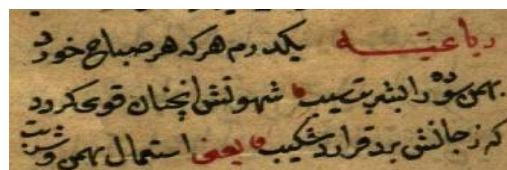 رباعیه یکدرم هر که هر صباح خورد
بهمن سوده را بشربت سیب شهوتش انچنان قوی کردد
که ز جانش برد قرار و شکیب یعنی استعمال بهمن و شربت